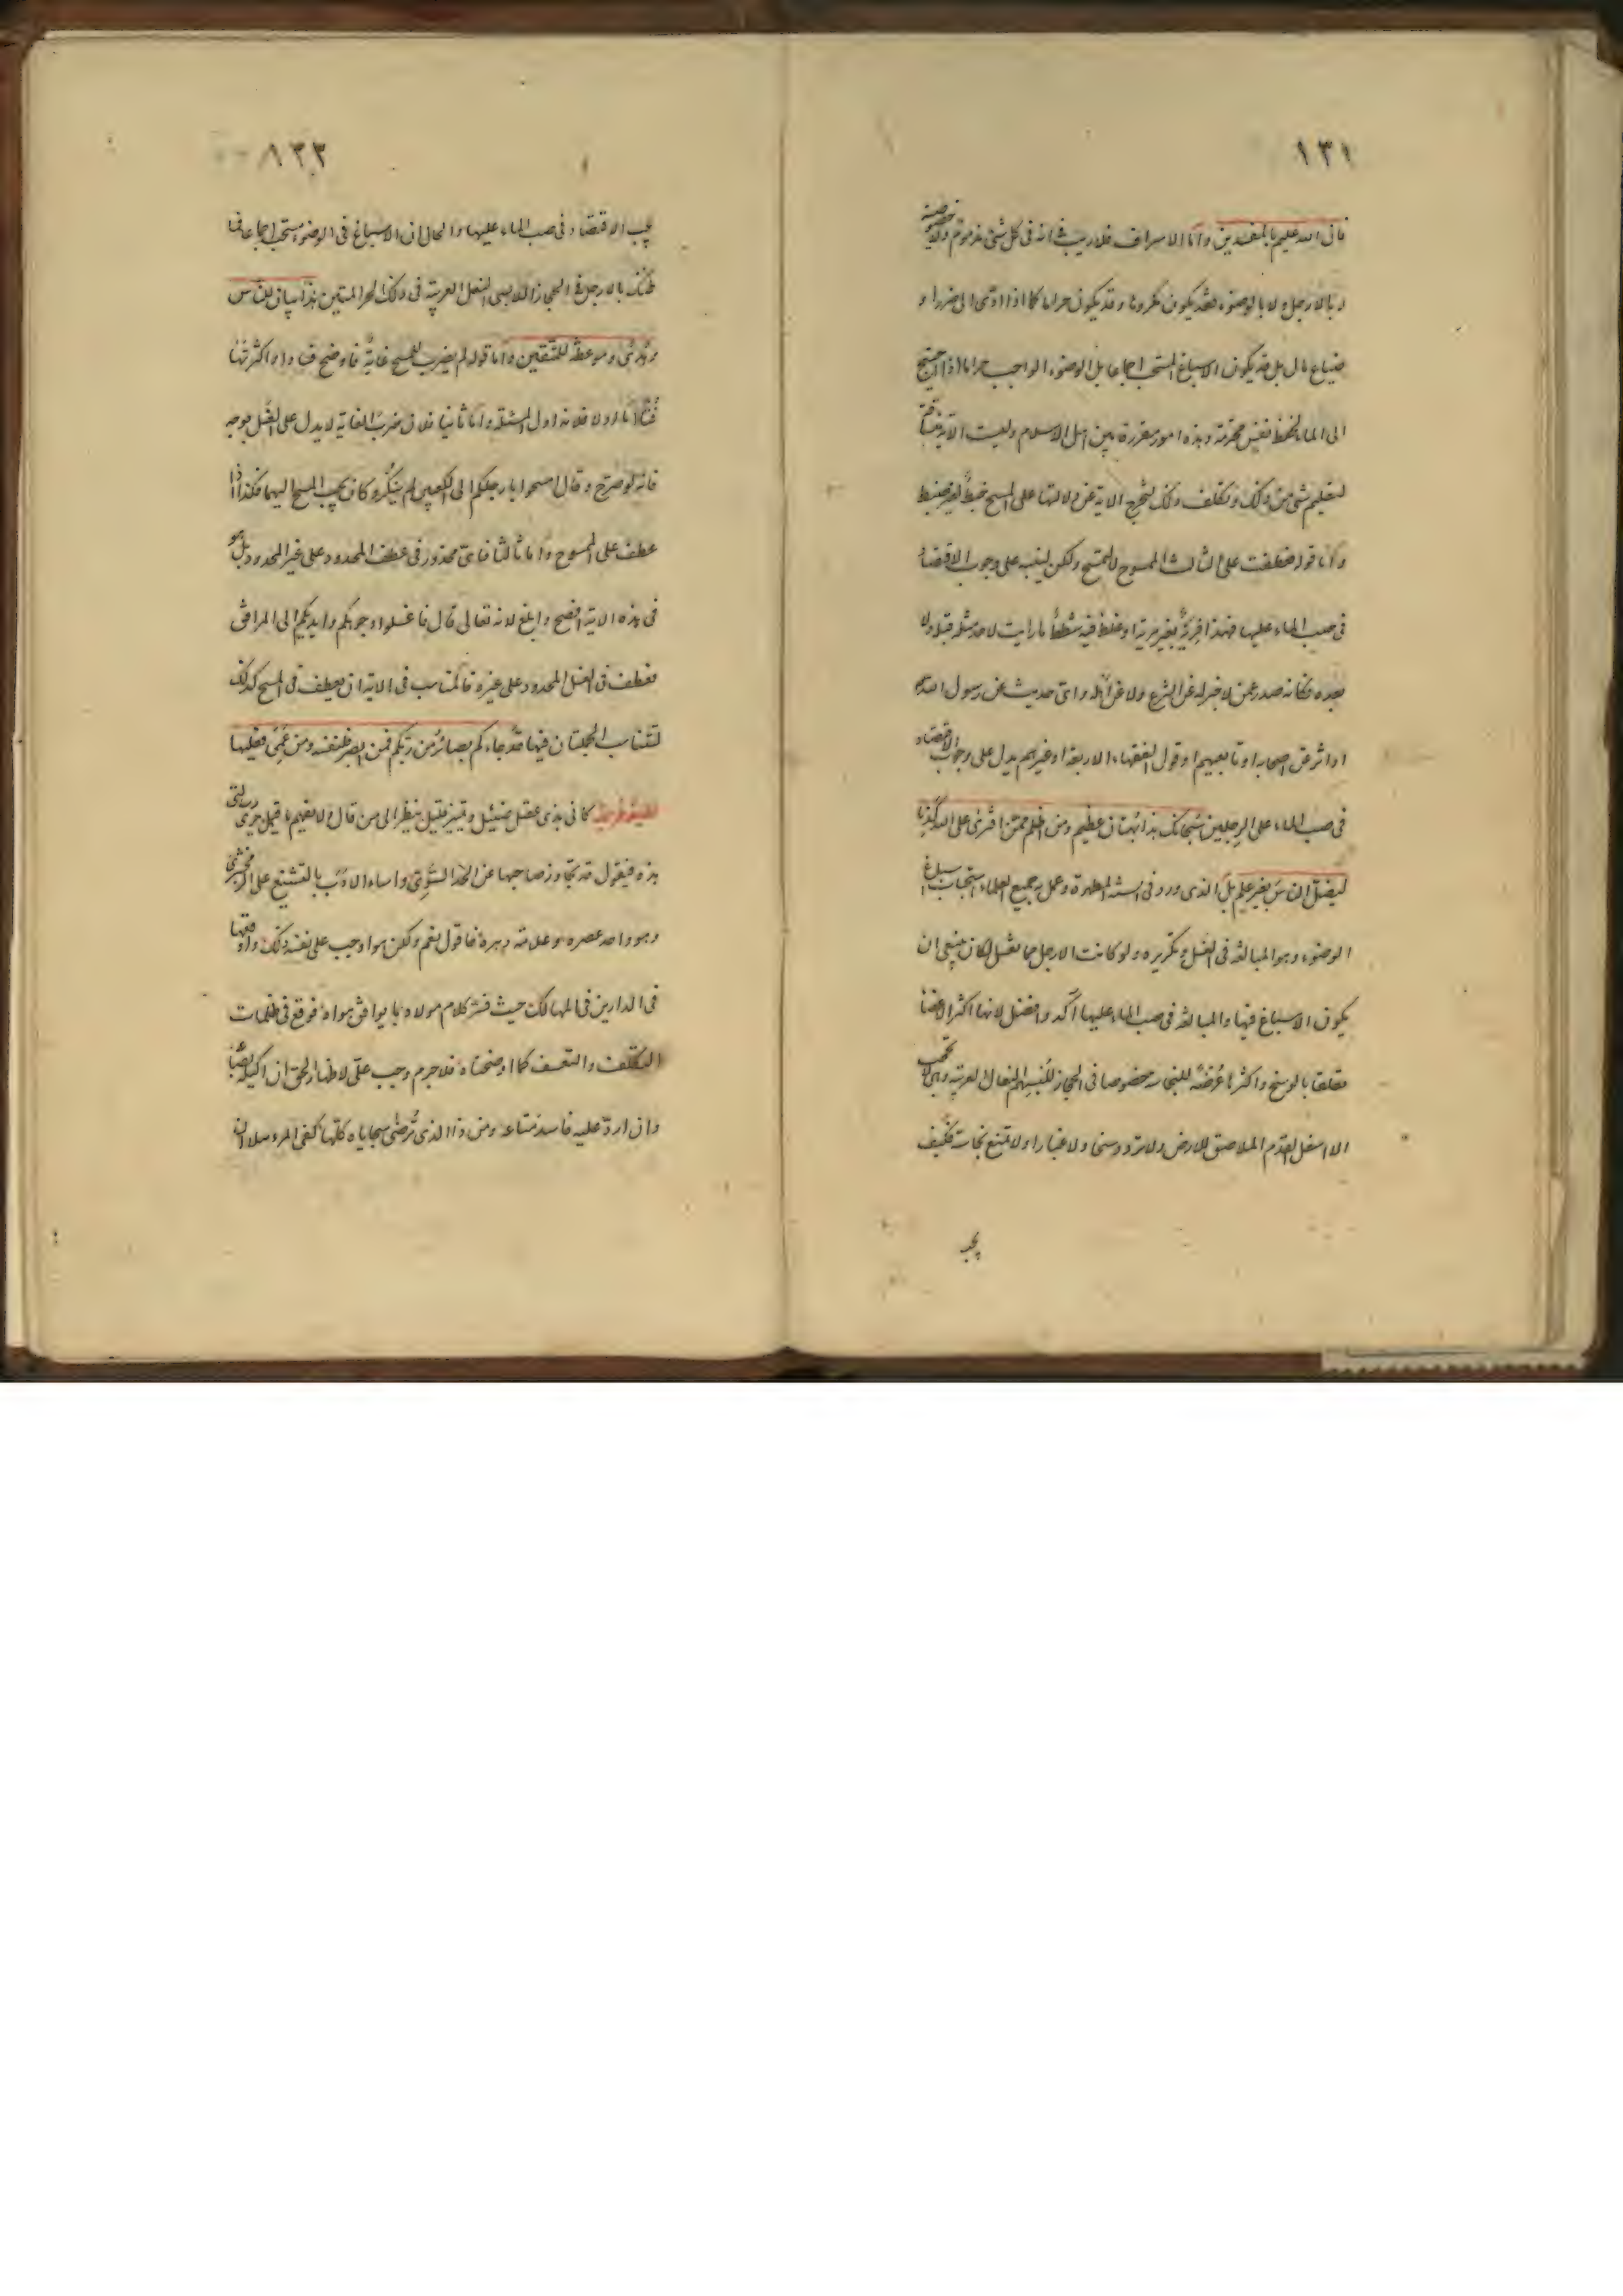 ١٣١
فان الله عليم بالمفسدين واما الاسراف فلا ريب انه في كل شئ مذموم ولا خصيصة
له بالارجل ولا بالوضوء فقد يكون مكروها وقد يكون حراما كما اذا ادى الى ضرر او
ضياع مال بل قد يكون الاسباغ المستحب اجماعا بل الوضوء الواجب حراما اذا احتيج
الى الماء لحفظ نفس محترمة وهذه امور مقررة بين اهل الاسلام وليست الاية
لتعليم شئ من ذلك وتكلف ذلك لتخرج الاية عن دلالتها على المسح خبط بغير ضبط
واما قوله فعطفت على الثالث الممسوح لا لتمسح ولكن لينبه على وجوب الاقتصاد
في صب الماء عليها فهذا فرية بغير مرية وغلط فيه شطط ما رايت لاحد مثله قبله ولا
بعده فكانه صدر عمن لا خبر له عن الشرع ولا عن اهله واي حديث عن رسول الله
او اثر عن اصحابه او تابعيهم او قول الفقهاء الاربعة او غيرهم يدل على وجوب الاقتصاد
في صب الماء على الرجلين سبحانك هذا بهتان عظيم ومن اظلم ممن افترى على الله كذبا
ليضل الناس بغير علم بل الذي ورد في السنة المطهرة وعمل به جميع العلماء استحباب اسباغ
الوضوء وهو المبالغة في الغسل وتكريره ولو كانت الارجل مما تغسل لكان ينبغي ان
يكون الاسباغ فيها والمبالغة في صب الماء عليها آكد وافضل لانها اكثر الاعضاء
تعلقا بالوسخ واكثرها عرضة للنجاسة خصوصا في الحجاز للبسهم النعال العربية وهي
الاسفل القدم الملاصق للارض ولا ترد وسخا ولا غبارا ولا تمنع نجاسة فكيف
يجب
١٣٢
يجب الاقتصاد في صب الماء عليها والحال ان الاسباغ في الوضوء مستحب اجماعا فما
ظنك بالارجل في الحجاز للابسي النعل العربية في ذلك الحر المتين هذا بيان للناس
وهدى وموعظة للمتقين واما قوله لم يضرب للمسح غاية فاوضح فسادا واكثر تهافتا
اما اولا فلانه اول المسئلة واما ثانيا فلان ضرب الغاية لا يدل على الغسل بوجه
فانه لو صرح وقال امسحوا بارجلكم الى الكعبين لم ينكر وكان يجب المسح اليهما فكذا اذا
عطف على الممسوح واما ثالثا فاي محذور في عطف المحدود على غير المحدود بل هو
في هذه الاية افصح وابلغ لانه تعالى قال فاغسلوا وجوهكم وايديكم الى المرافق
فعطف في الغسل المحدود على غيره فالمناسب في الاية ان يعطف في المسح كذلك
لتناسب الجملتان فيها قد جاءكم بصائر من ربكم فمن ابصر فلنفسه ومن عمي فعليها
كاني بذي عقل ضئيل وتمييز قليل ينظر الى من قال ولا يفهم ما قيل يرى رسالتي
هذه فيقول قد تجاوز صاحبها عن الحد السوي واساء الادب بالتشنيع على الزمخشري
وهو واحد عصره وعلامة دهره فاقول نعم ولكن هو اوجب على نفسه ذلك واوقعها
في الدارين في المهالك حيث فسر كلام مولاه بما يوافق هواه فوقع في ظلمات
التكلف والتعسف كما اوضحناه فلا جرم وجب علي لاظهار الحق ان اكيله
وان ارد عليه فاسد متاعه ومن ذا الذي ترضى سجاياه كلها كفى المرء نبلا ان